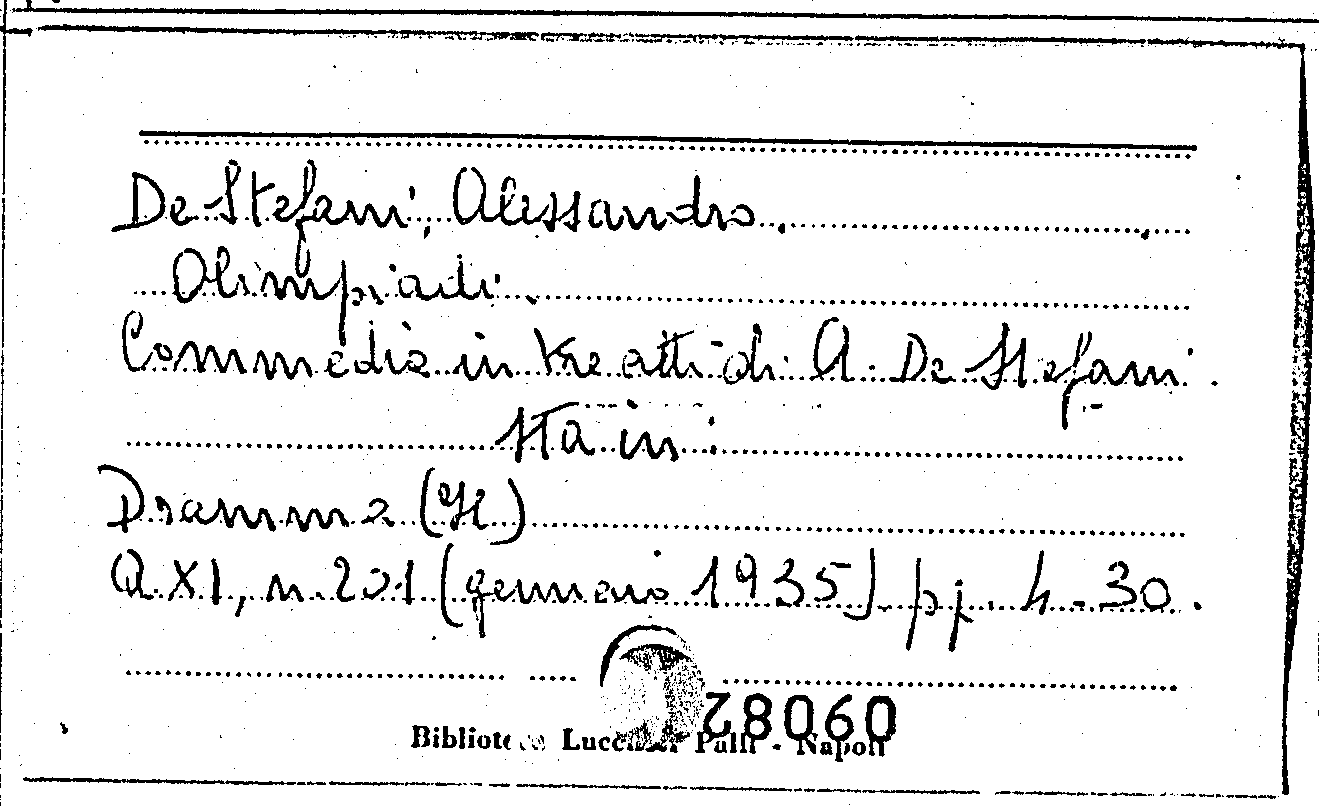 De Stefani, Alessandro.
Olimpiadi.
Commedia in tre atti di A. De Stefani.
sta in:
Dramma (Il)
A. XI, n. 201 (gennaio 1935) pp. 4-30.
28090
Biblioteca Lucchesi Palli - Napoli